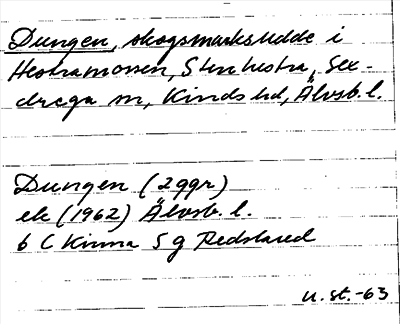 Dungen, skogsmarksudde i
Hestramossen, Stenhestra, Sex-
drega sn, Kinds hd, Älvsb. l.
Dungen (2ggr)
ek (1962) Älvsb. l.
6 C Kinna 5 g Redslared
u. st. -63